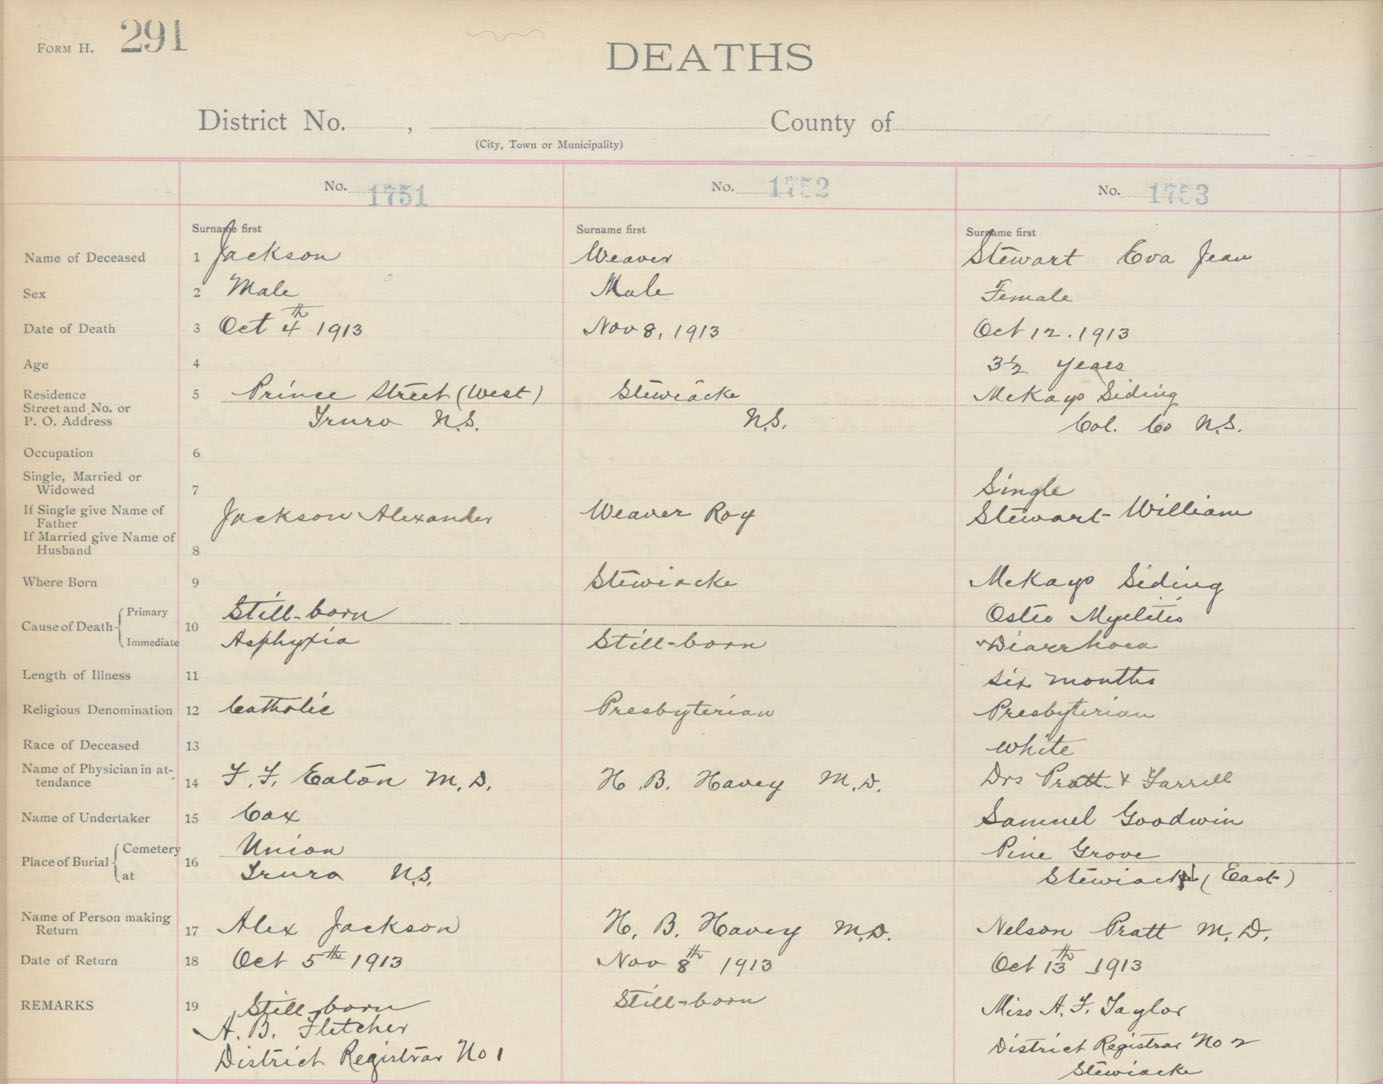 FORM H. 291
DEATHS
District No. , County of
(City, Town or Municipality)
No. 1751 No. 1752 No. 1753
Surname first Surname first Surname first
Name of Deceased 1 Jackson Weaver Stewart Eva Jean
Sex 2 Male Male Female
Date of Death 3 Oct 4th 1913 Nov 8, 1913 Oct 12. 1913
Age 4 3½ years
Residence 5 Prince Street (West) Stewiacke McKays Siding
Street and No. or
P. O. Address Truro N.S. N.S. Col. Co N.S.
Occupation 6
Single, Married or
Widowed 7 Single
If Single give Name of
Father Jackson Alexander Weaver Roy Stewart William
If Married give Name of
Husband 8
Where Born 9 Stewiacke McKays Siding
Cause of Death Primary 10 Still-born Osteo Myelitis
Immediate Asphyxia Still-born Diarrhoea
Length of Illness 11 six months
Religious Denomination 12 Catholic Presbyterian Presbyterian
Race of Deceased 13 white
Name of Physician in at-
tendance 14 F. F. Eaton M.D. H. B. Havey M.D. Drs Pratt & Farrell
Name of Undertaker 15 Cox Samuel Goodwin
Place of Burial Cemetery 16 Union Pine Grove
at Truro N.S. Stewiacke (East)
Name of Person making
Return 17 Alex Jackson H. B. Havey M.D. Nelson Pratt M.D.
Date of Return 18 Oct 5th 1913 Nov 8th 1913 Oct 13th 1913
REMARKS 19 Still-born Still-born Miss A. F. Taylor
A. B. Fletcher
District Registrar No 1 District Registrar No 2
Stewiacke